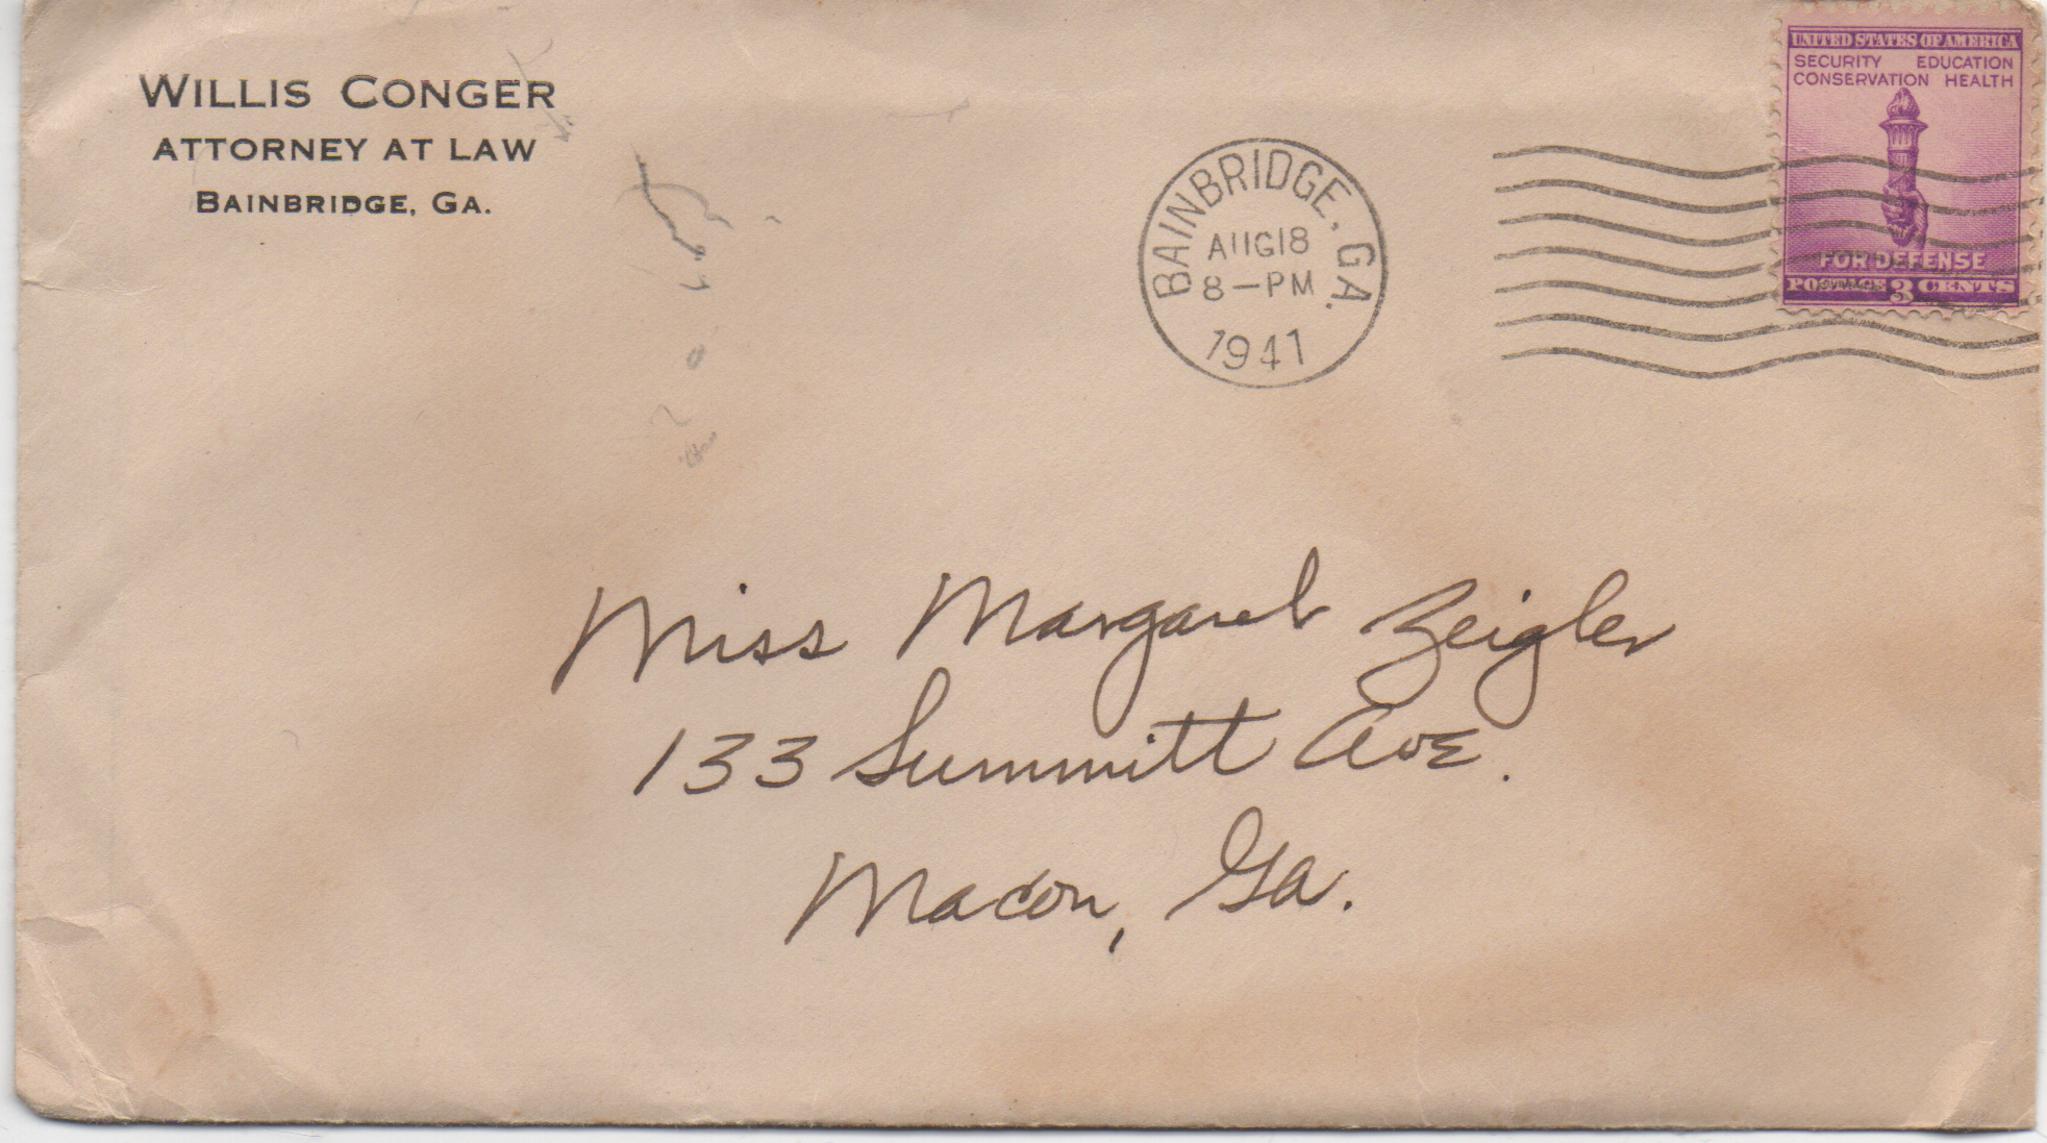 WILLIS CONGER
ATTORNEY AT LAW
BAINBRIDGE, GA.
BAINBRIDGE, GA.
AUG 18
8-PM
1941
UNITED STATES OF AMERICA
SECURITY EDUCATION
CONSERVATION HEALTH
FOR DEFENSE
POSTAGE 3 CENTS
Miss Margaret Zeigler
133 Summitt Ave.
Macon, Ga.